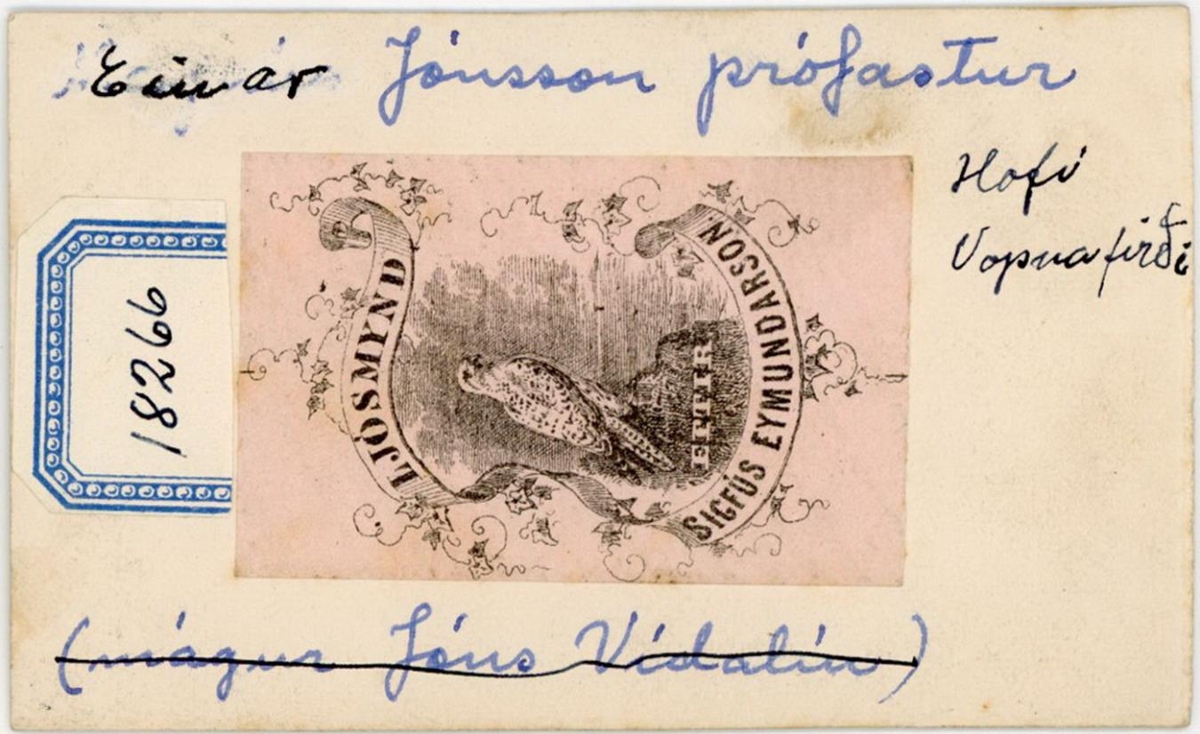 Einar Jónsson prófastur
Hofi
Vopnafirði
18266
LJÓSMYND
EPTIR
SIGFÚS EYMUNDARSON
(mágur Jóns Vídalín)